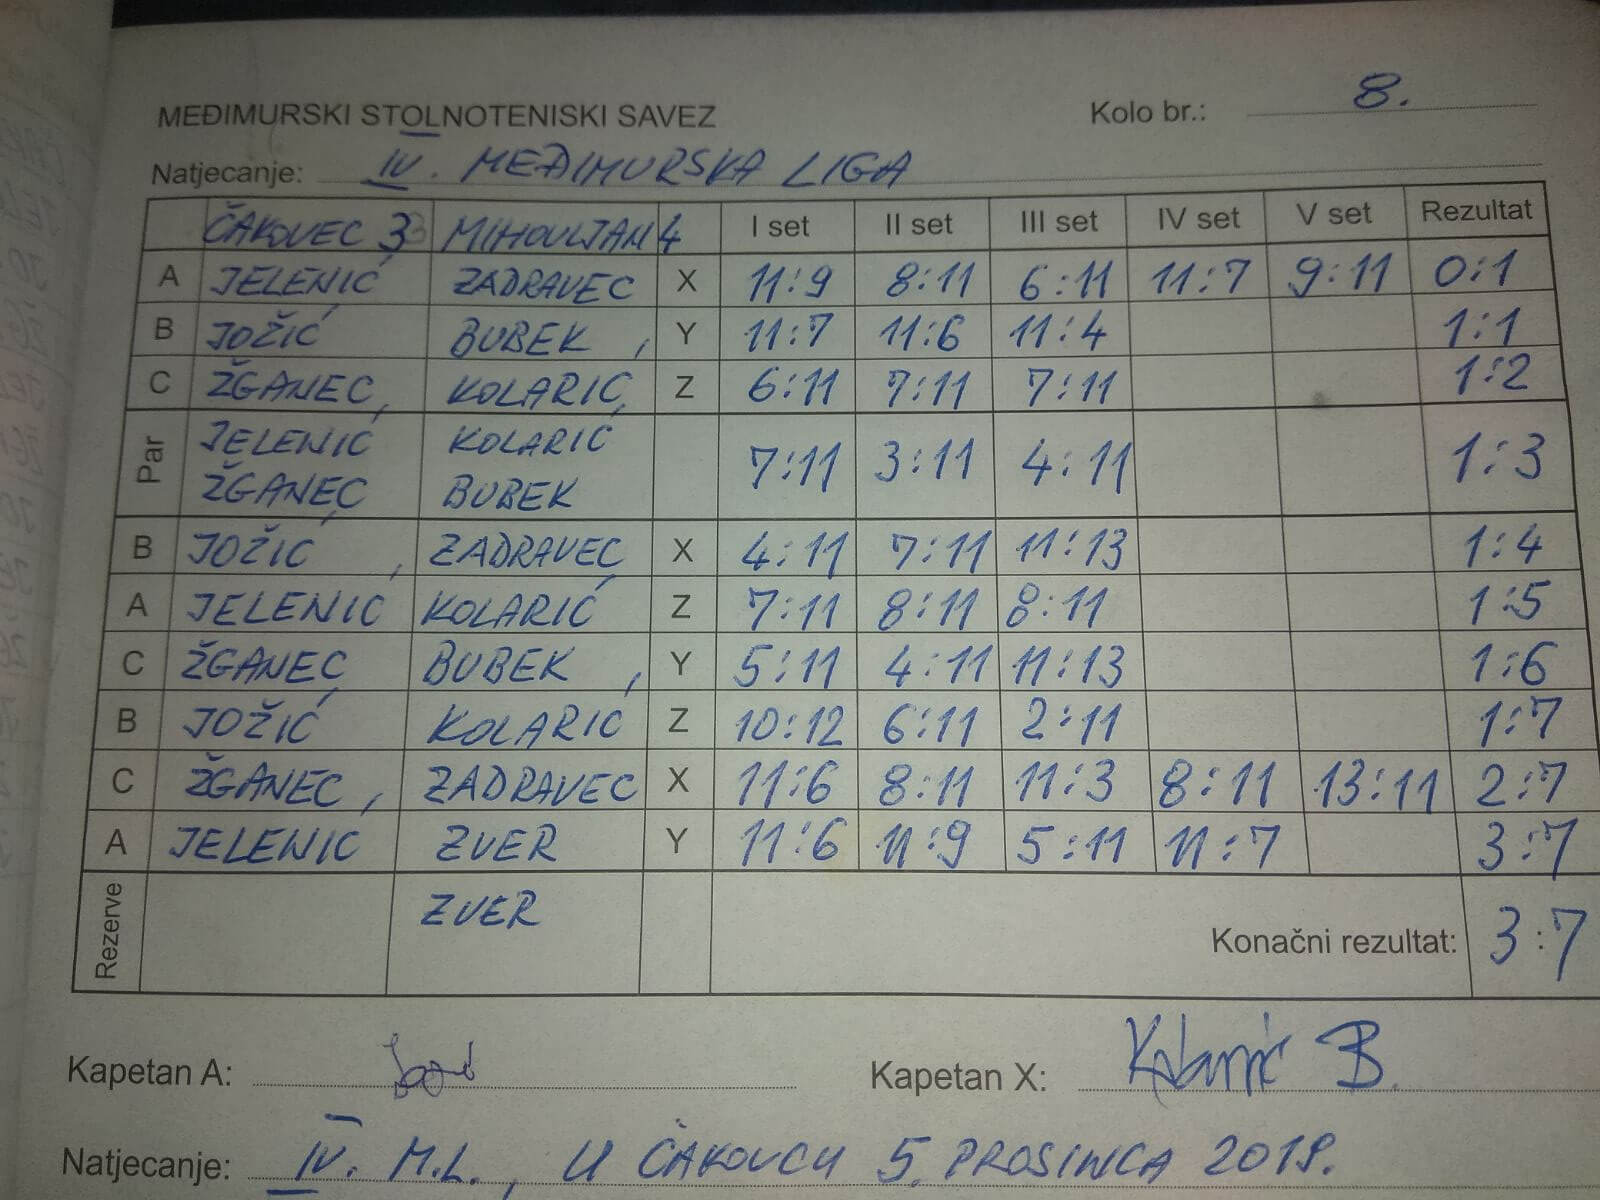 MEĐIMURSKI STOLNOTENISKI SAVEZ Kolo br.: 8.
Natjecanje: IV. MEĐIMURSKA LIGA
ČAKOVEC 3 MIHOVLJAN 4 I set II set III set IV set V set Rezultat
A JELENIĆ ZADRAVEC X 11:9 8:11 6:11 11:7 9:11 0:1
B JOŽIĆ BUBEK Y 11:7 11:6 11:4 1:1
C ŽGANEC KOLARIĆ Z 6:11 7:11 7:11 1:2
Par JELENIĆ KOLARIĆ 7:11 3:11 4:11 1:3
ŽGANEC BUBEK
B JOŽIĆ ZADRAVEC X 4:11 7:11 11:13 1:4
A JELENIC KOLARIĆ Z 7:11 8:11 8:11 1:5
C ŽGANEC BUBEK Y 5:11 4:11 11:13 1:6
B JOŽIĆ KOLARIĆ Z 10:12 6:11 2:11 1:7
C ŽGANEC ZADRAVEC X 11:6 8:11 11:3 8:11 13:11 2:7
A JELENIC ZVER Y 11:6 11:9 5:11 11:7 3:7
Rezerve ZVER Konačni rezultat: 3:7
Kapetan A: Kapetan X: Kolarić B.
Natjecanje: IV. M.L., U ČAKOVCU 5. PROSINCA